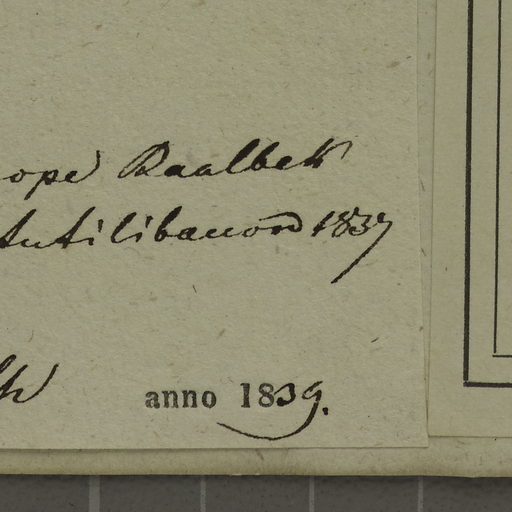 prope Baalbek
Antilibanon 1837
anno 1839.